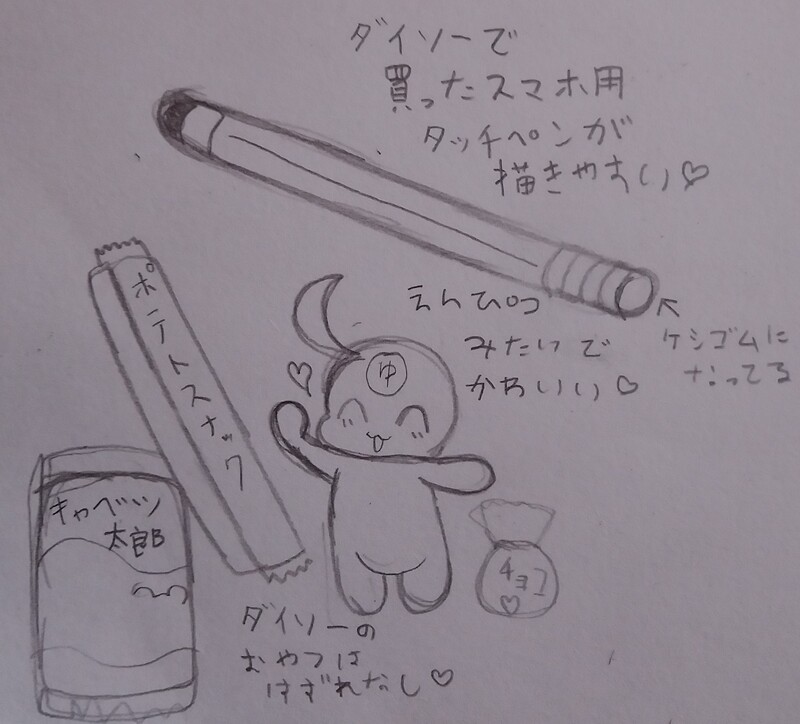 ダイソーで
買ったスマホ用
タッチペンが
描きやすい♡
えんぴつ
みたいで
かわいい♡
ケシゴムに
なってる
ポテトスナック
ゆ
キャベツ
太郎
チョコ
ダイソーの
おやつは
はずれなし♡